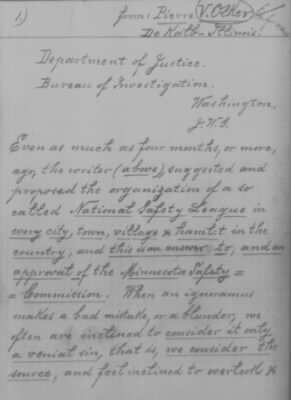 1.) from: Pierre V. Olker
De Kalb - Illinois.
Department of Justice.
Bureau of Investigation.
Washington.
Even as much as four months, or more,
ago, the writer (above), suggested and
proposed the organization of a so
called National Safety League in
every city, town, village & hamlet in the
country, and this is an answer to, and an
approval of the Minnesota Safety =
= Commission. When an ignoramus
makes a bad mistake, or a blunder, we
often are inclined to consider it only
a venial sin, that is, we consider the
source, and feel inclined to overlook &